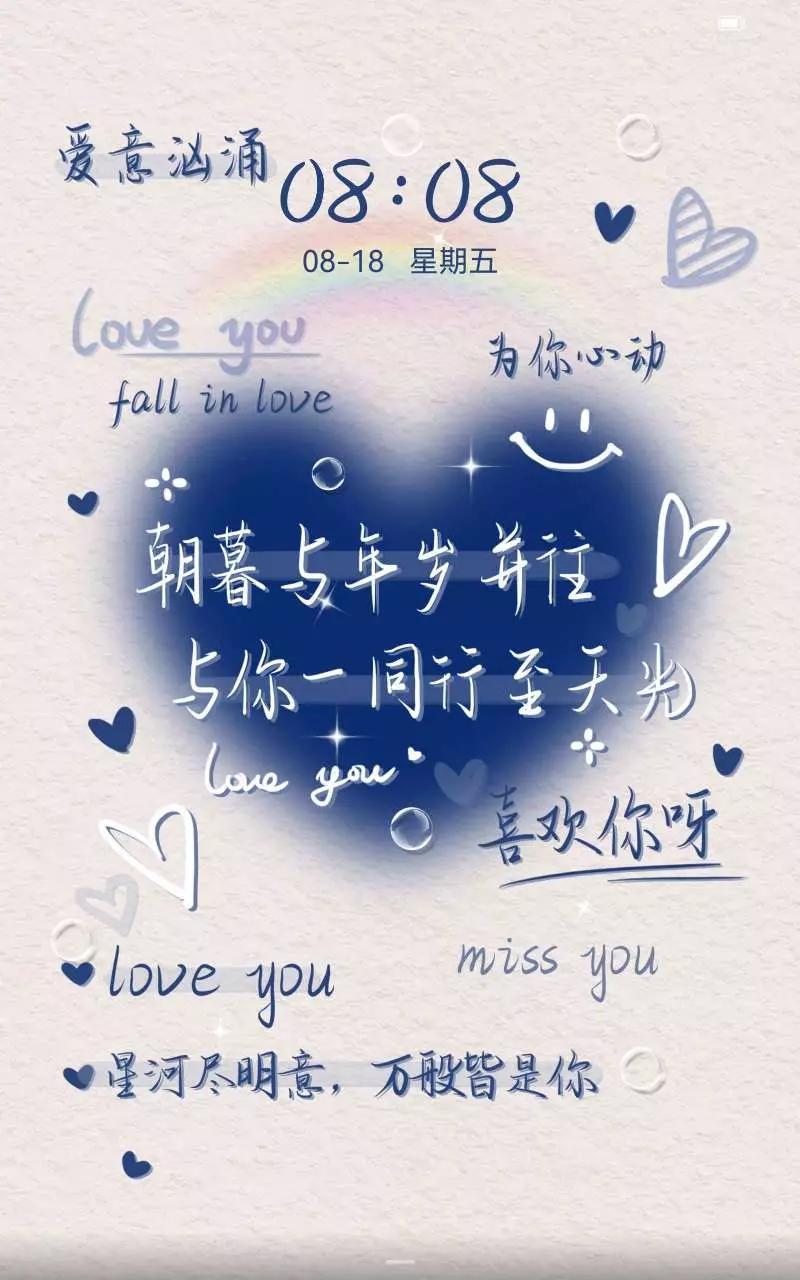 爱意汹涌
08:08
08-18 星期五
love you
为你心动
fall in love
朝暮与年岁并往
与你一同行至天光
love you
喜欢你呀
love you
miss you
星河尽明意，万般皆是你